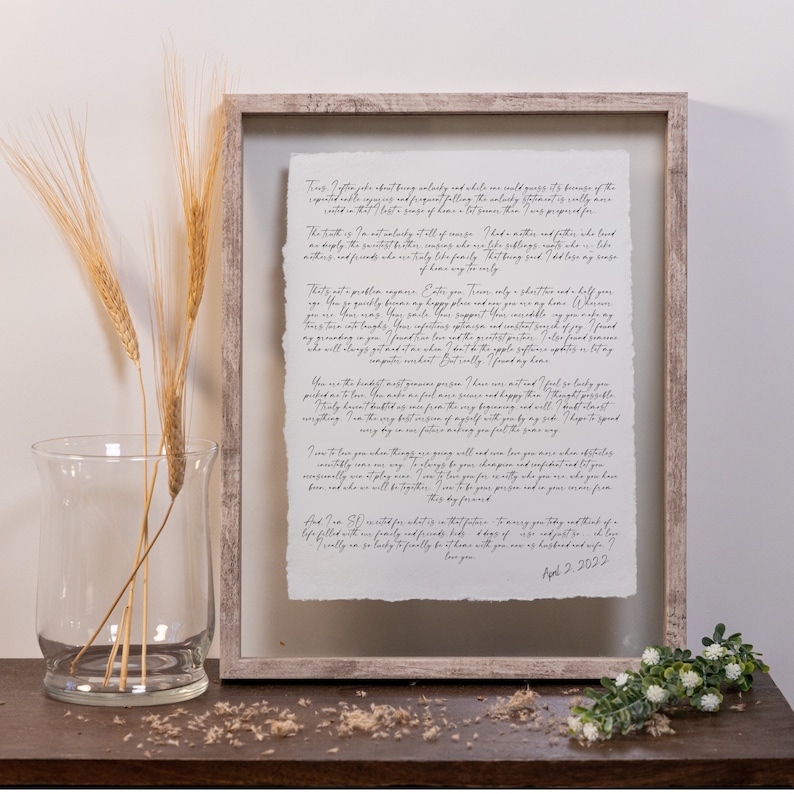 Trevs, I often joke about being unlucky and while one could guess it's because of the
repeated ankle injuries and frequent falling, the unlucky statement is really more
rooted in that I lost a sense of home a lot sooner than I was prepared for.
The truth is I'm not unlucky at all of course. I had a mother and father who loved
me deeply, the sweetest brother, cousins who are like siblings, aunts who are like
mothers, and friends who are truly like family. That being said, I did lose my sense
of home way too early.
That's not a problem anymore. Enter you, Trevor, only a short two and a half year
ago. You so quickly became my happy place and now you are my home. Wherever
you are. Your arms. Your smile. Your support. Your incredible way you make my
tears turn into laughs. Your infectious optimism and constant search of joy. I found
my grounding in you. I found true love and the greatest partner. I also found someone
who will always get mad at me when I don't do the apple software updates or let my
computer overheat. But really, I found my home.
You are the kindest most genuine person I have ever met and I feel so lucky you
picked me to love. You make me feel more secure and happy than I thought possible.
I truly haven't doubted us once from the very beginning, and well, I doubt almost
everything. I am the very best version of myself with you by my side. I hope to spend
every day in our future making you feel the same way.
I vow to love you when things are going well and even love you more when obstacles
inevitably come our way. To always be your champion and confident and let you
occasionally win at play nine. I vow to love you for exactly who you are, who you have
been, and who we will be together. I vow to be your person and in your corner from
this day forward.
And I am SO excited for what is in that future - to marry you today and think of a
life filled with our family and friends, kids, dogs of and just so love
I really am so lucky to finally be at home with you, now as husband and wife. I
love you.
April 2, 2022